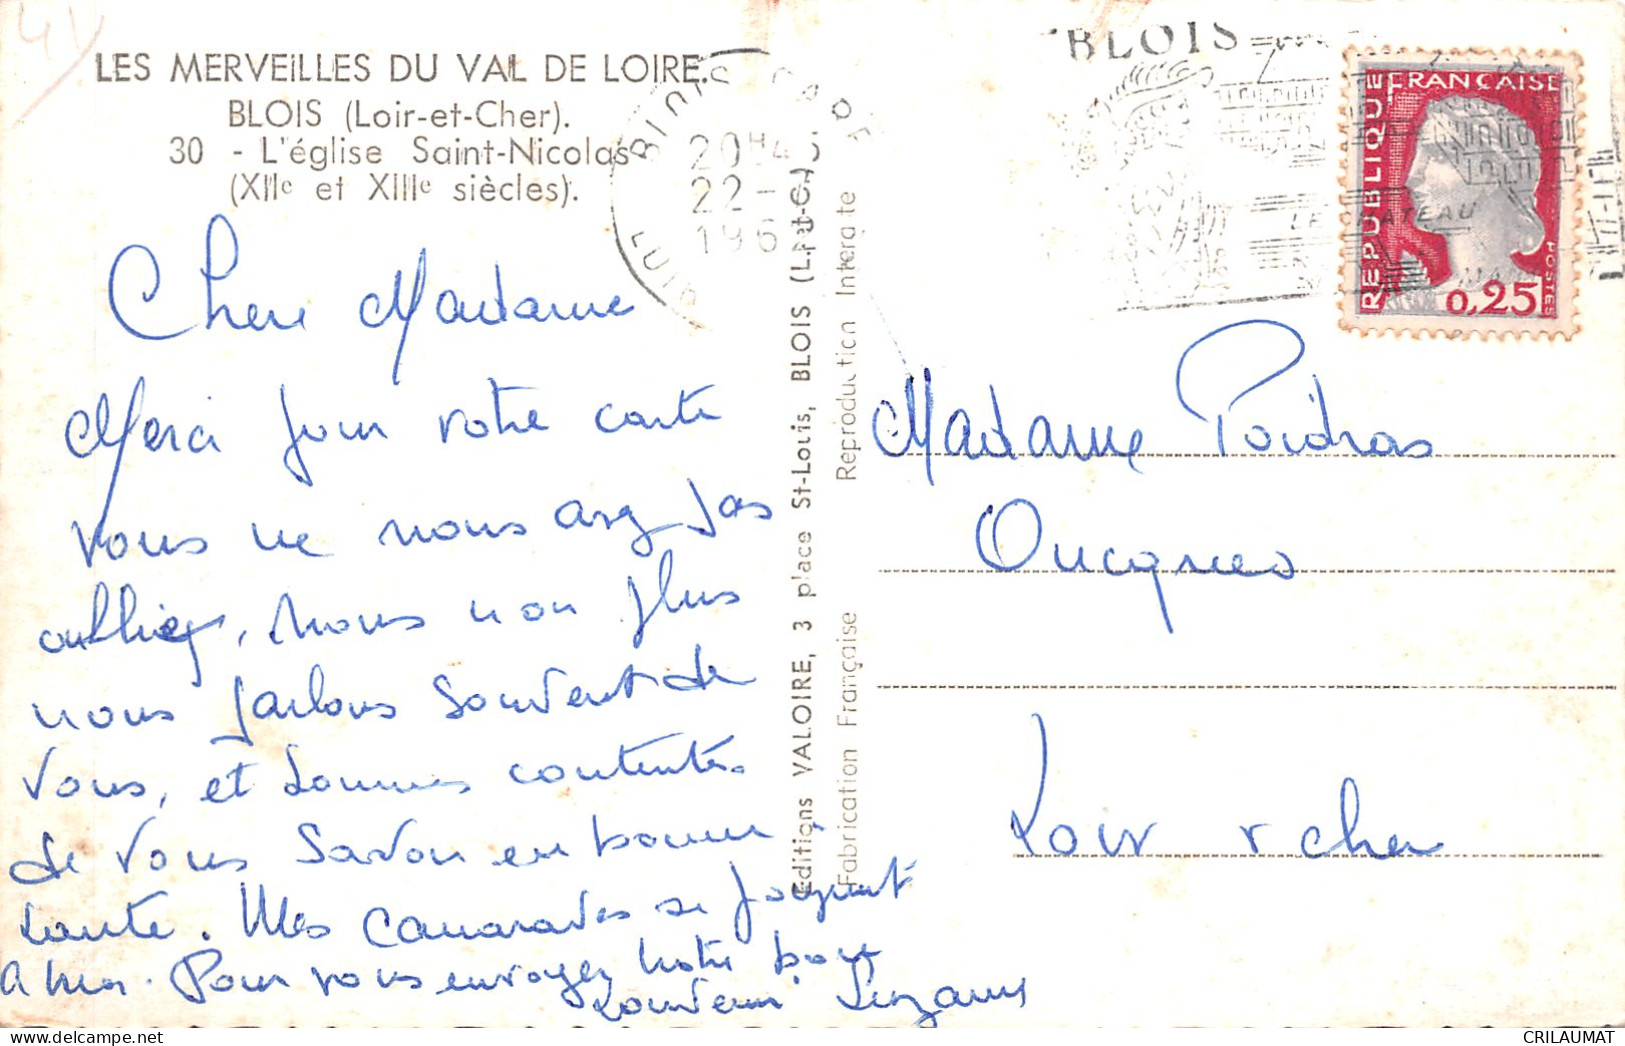 LES MERVEILLES DU VAL DE LOIRE.
BLOIS (Loir-et-Cher).
30 - L'église Saint-Nicolas
(XIIe et XIIIe siècles).
Chere Madame
Merci pour votre carte
vous ne nous avez pas
oubliez, nous non plus
nous parlons souvent de
vous, et sommes contente
de vous savoir en bonne
santé. Mes camarades se joignent
a moi. Pour vous envoyez notre bon
souvenir Suzanne
Editions VALOIRE, 3 place St-Louis, BLOIS (L.-et-C.)
Fabrication Française Reproduction Interdite
20H
22-
196
BLOIS
LE CHATEAU
REPUBLIQUE
FRANÇAISE
POSTES
0,25
Madame Poidras
Oucques
Loir et cher
CRILAUMAT